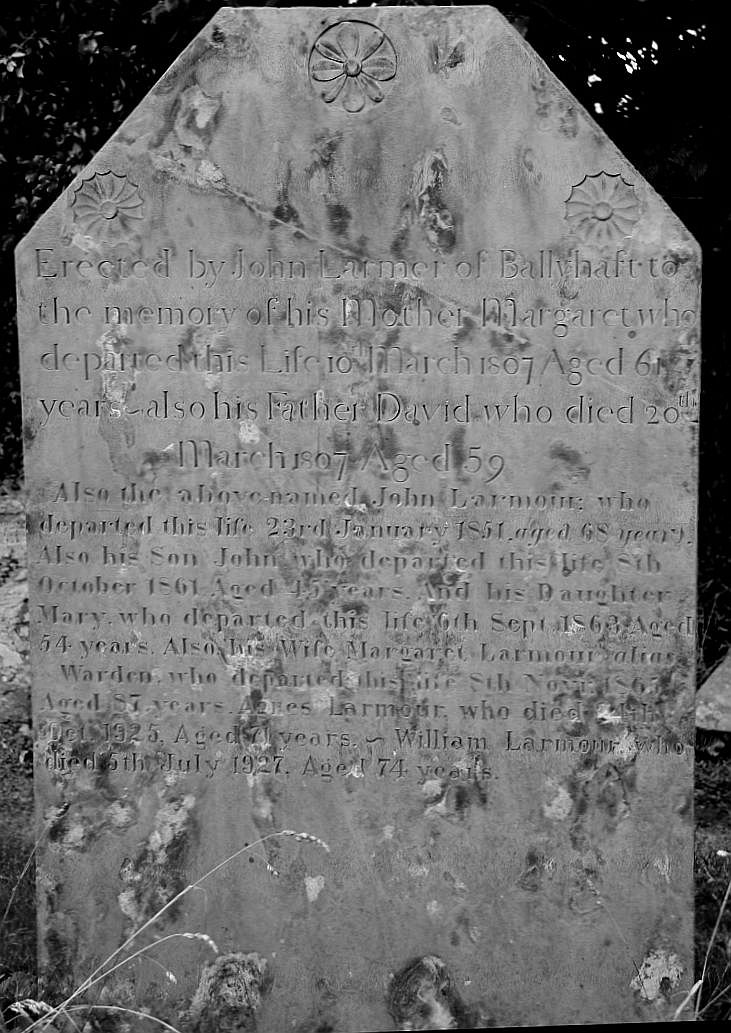 Erected by John Larmer of Ballyhaft to
the memory of his Mother Margaret who
departed this Life 10th March 1807 Aged 61
years ~ also his Father David who died 20th
March 1807 Aged 59
Also the above named John Larmour; who
departed this life 23rd January 1851, aged 68 years.
Also his Son John who departed this life 8th
October 1861 Aged 45 years. And his Daughter
Mary, who departed this life 6th Sept. 1863 Aged
54 years. Also his Wife Margaret Larmour alias
Warden, who departed this life 8th Novr. 1865
Aged 87 years. Agnes Larmour, who died
Oct. 1925, Aged 71 years. ~ William Larmour, who
died 5th July 1927, Aged 74 years.